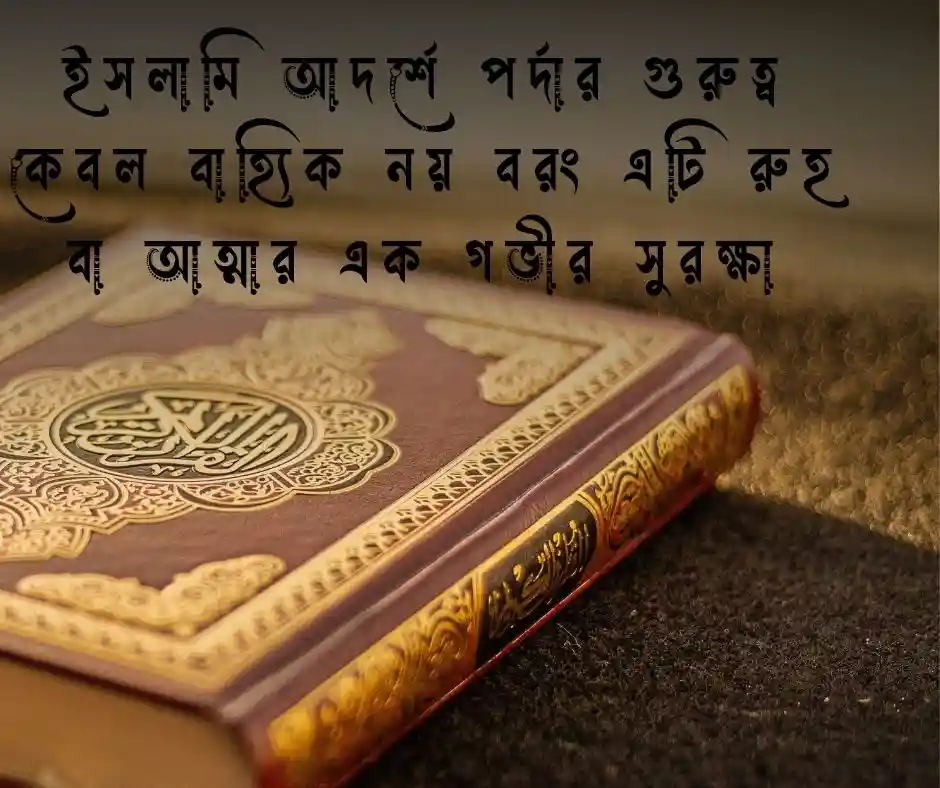 ইসলামি আদর্শে পর্দার গুরুত্ব
কেবল বাহ্যিক নয় বরং এটি রুহ
বা আত্মার এক গভীর সুরক্ষা
القرآن الكريم